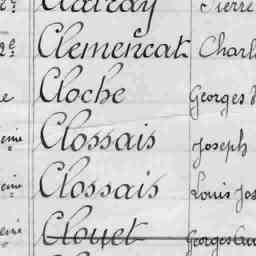 Clairay Pierre
2e Clemencat Charl
e Cloche Georges
eme Clossais Joseph
eme Clossais Louis Jos
eme Clouet Georges